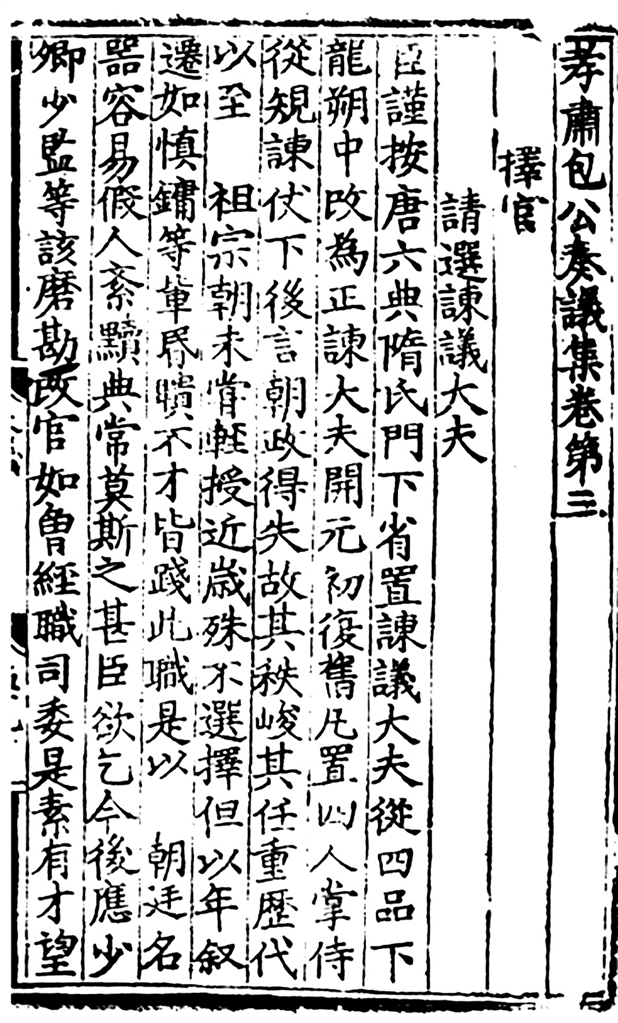 孝肅包公奏議集卷第三
擇官
請選諫議大夫
臣謹按唐六典隋氏門下省置諫議大夫從四品下
龍朔中改為正諫大夫開元初復舊凡置四人掌侍
從規諫仗下後言朝政得失故其秩峻其任重歷代
以至 祖宗朝未嘗輕授近歲殊不選擇但以年叙
遷如慎鏞等輩昬聵不才皆踐此職是以 朝廷名
器容易假人紊黷典常莫斯之甚臣欲乞今後應少
卿少監等該磨勘改官如曾經職司委是素有才望